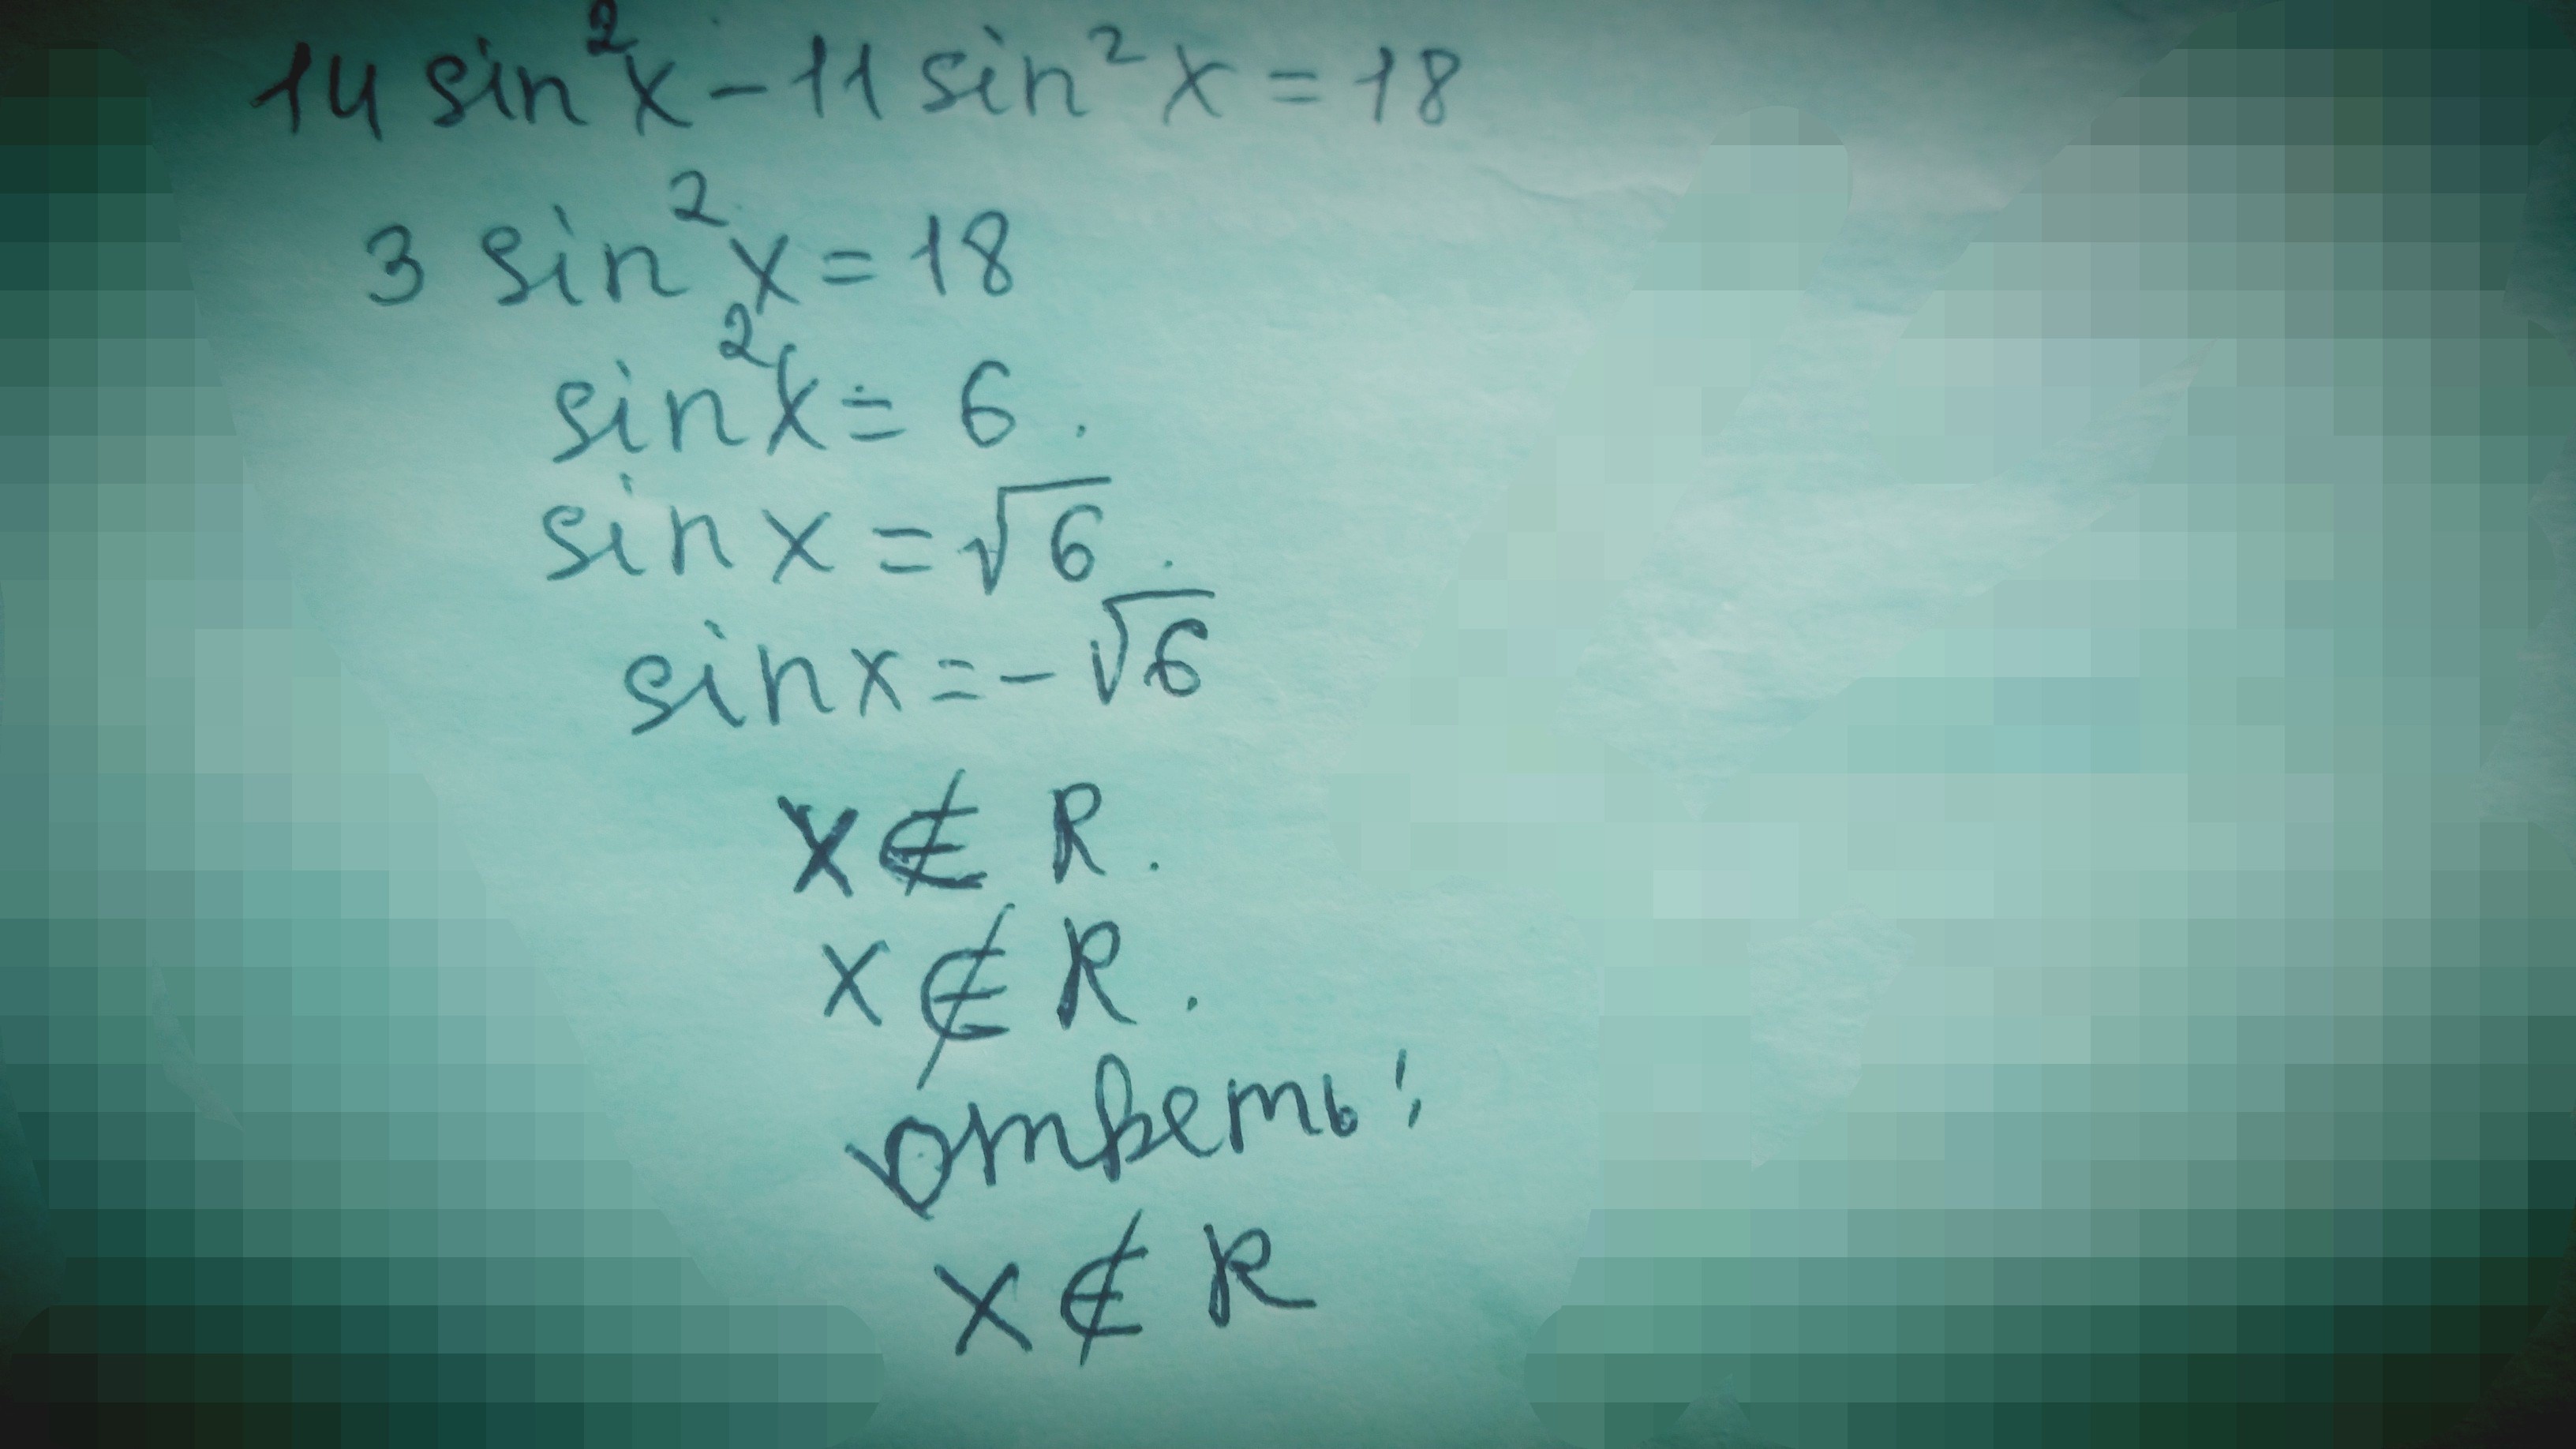 14 sin²x - 11 sin² x = 18
3 sin²x = 18
sin²x = 6.
sin x = √6.
sin x = - √6
x ∉ R.
x ∉ R.
ответь:
x ∉ R